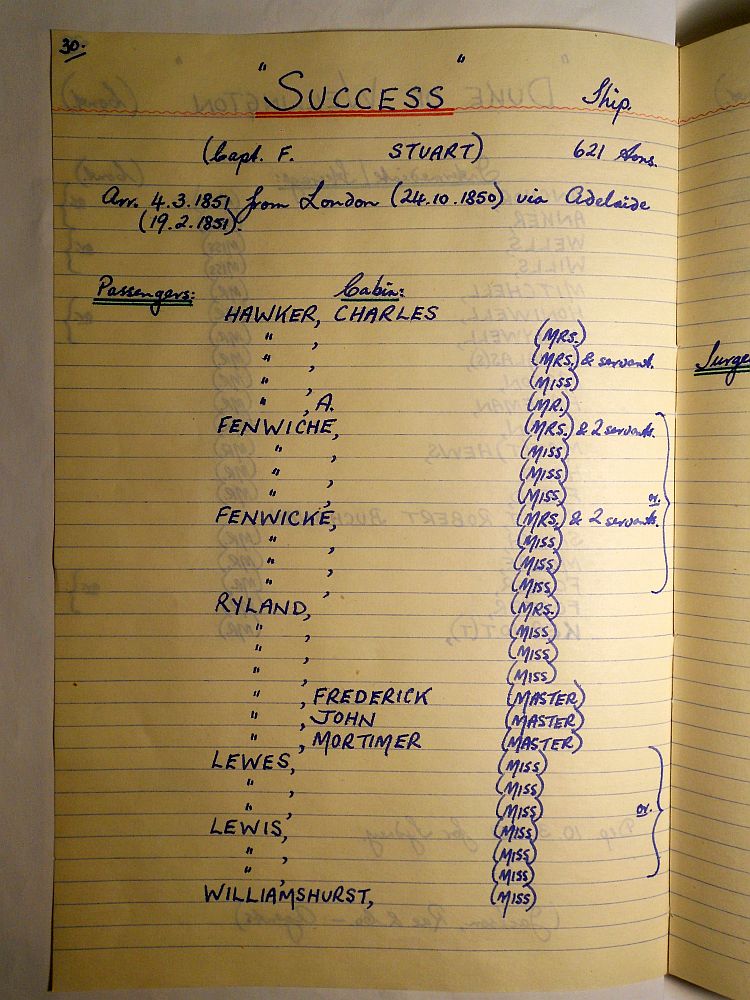 30.
"SUCCESS" Ship.
(Capt. F. STUART) 621 tons.
Arr. 4.3.1851 from London (24.10.1850) via Adelaide
(19.2.1851).
Passengers: Cabin:
HAWKER, CHARLES
" , (MRS.)
" , (MRS.) & servant.
" , (MISS)
" , A. (MR.)
FENWICHE, (MRS.) & 2 servants.
" , (MISS)
" , (MISS)
" , (MISS)
or.
FENWICKE, (MRS.) & 2 servants.
" , (MISS)
" , (MISS)
" , (MISS)
RYLAND, (MRS.)
" , (MISS)
" , (MISS)
" , (MISS)
" , FREDERICK (MASTER)
" , JOHN (MASTER)
" , MORTIMER (MASTER)
LEWES, (MISS)
" , (MISS)
" , (MISS)
or.
LEWIS, (MISS)
" , (MISS)
" , (MISS)
WILLIAMSHURST, (MISS)
Surge